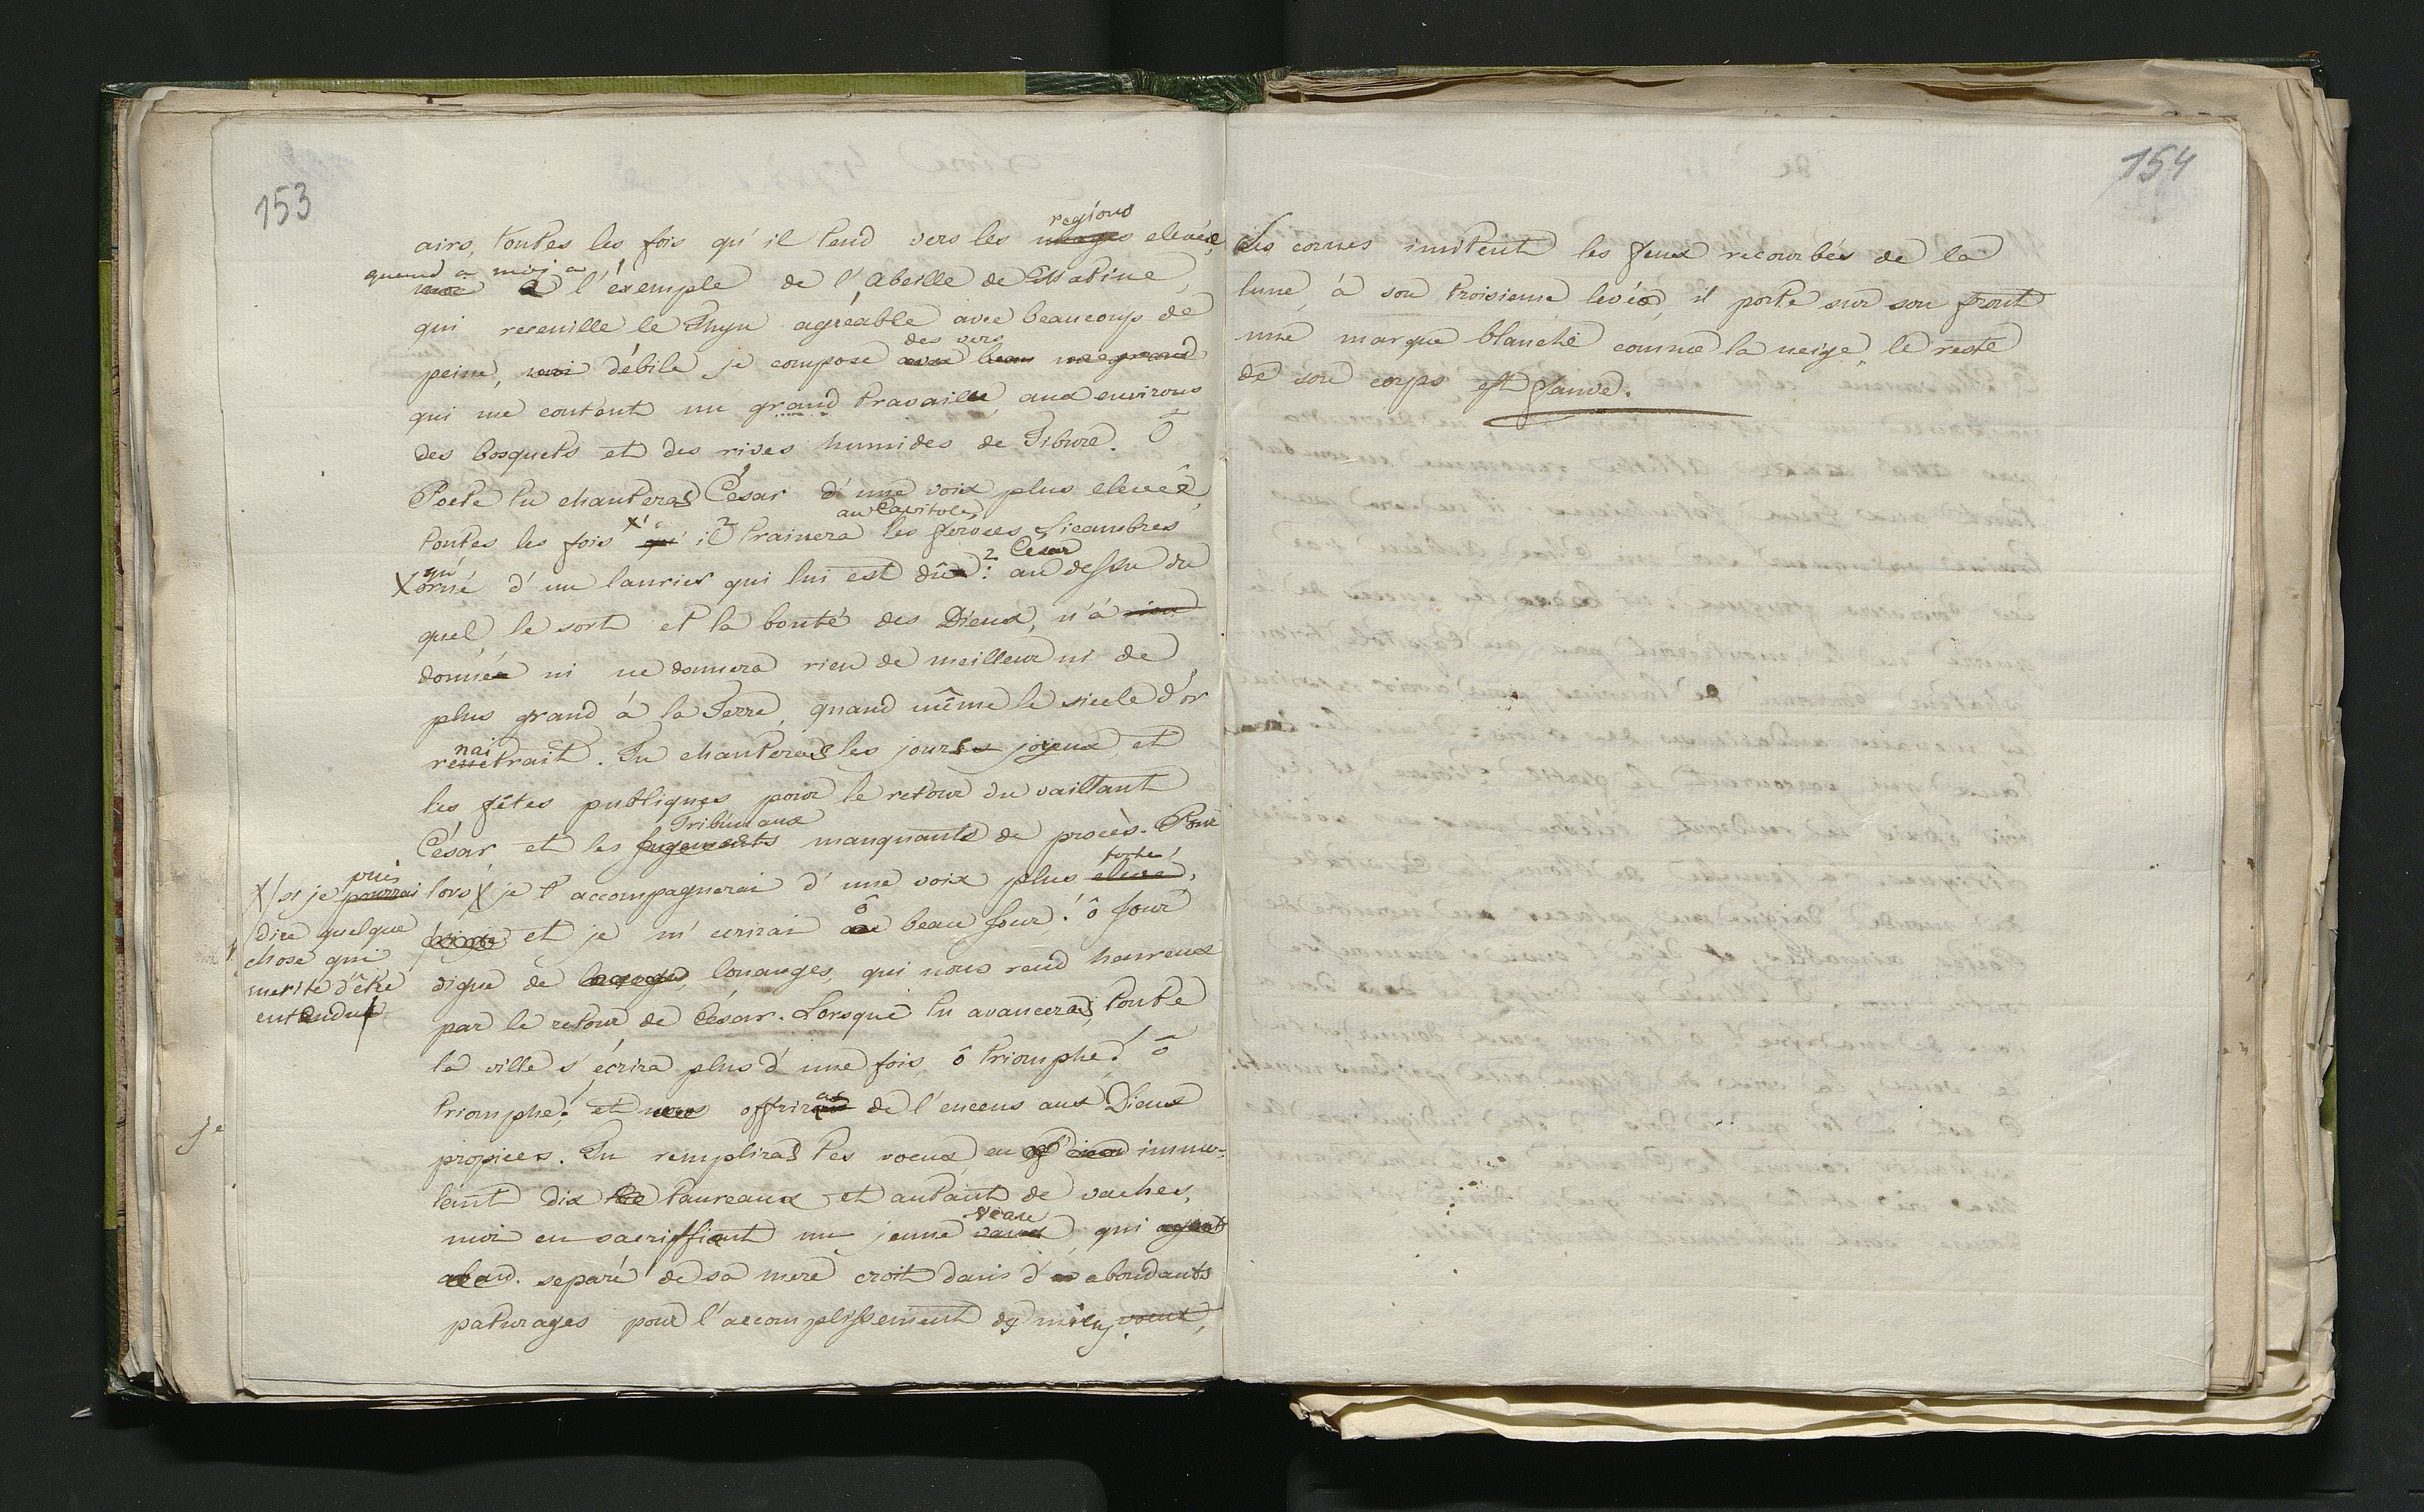 153
airs, toutes les fois qu'il tend vers les nuages regions elevés,
quand a moi a l'éxemple de l'Abeille de Matine,
qui receuille le Thyn agréable avec beaucoup de
peine, débile je compose des vers
qui me contient un grand travaille, aux environs
des bosquets et des rives humides de Tibure. Ô
Poete tu chanteras César d'une voix plus elevée,
toutes les fois X qu' il 2 trainera au Capitole, les feroces Sicambres
X qu' orné d'un laurier qui lui est dû : 2 César au dessu du
quel, le sort et la bonté des Dieux, n'á rien
donnée ni ne donnera rien de meilleur ni de
plus grand á la Terre, quand même le siecle d'or
renaitrait. Tu chanteras les jours joyeux, et
les fêtes publiques pour le retour du vaillant
César et les Jugements Tribunaux manquants de procès. Pour
lors X je t'accompagnerai d'une voix plus elevée, forte,
et je m'ecrirai ô beau Jour! ô Jour
digne de louanges, qui nous rend heureux
par le retour de César. Lorsque tu avanceras, toute
la ville s'écrira plus d'une fois, ô triomphe! ô
triomphe! et offriras de l'encens aux Dieux
propices. Tu rempliras tes voeux, en immo-
lant dix taureaux et autant de vaches,
moi en sacriffiant un jeune veau, qui ayant
separé de sa mere croit dans d' abondants
paturages pour l'accomplissement des miens. voeux,
X/ si je puis pourrai
dire quelque
chose qui
merite d'être
entendue
1e
154
Ses cornes imitent les feux recourbés de la
lune, á son troisieme levée, il porte sur son front
une marque blanche comme la neige, le reste
de son corps est fauve.